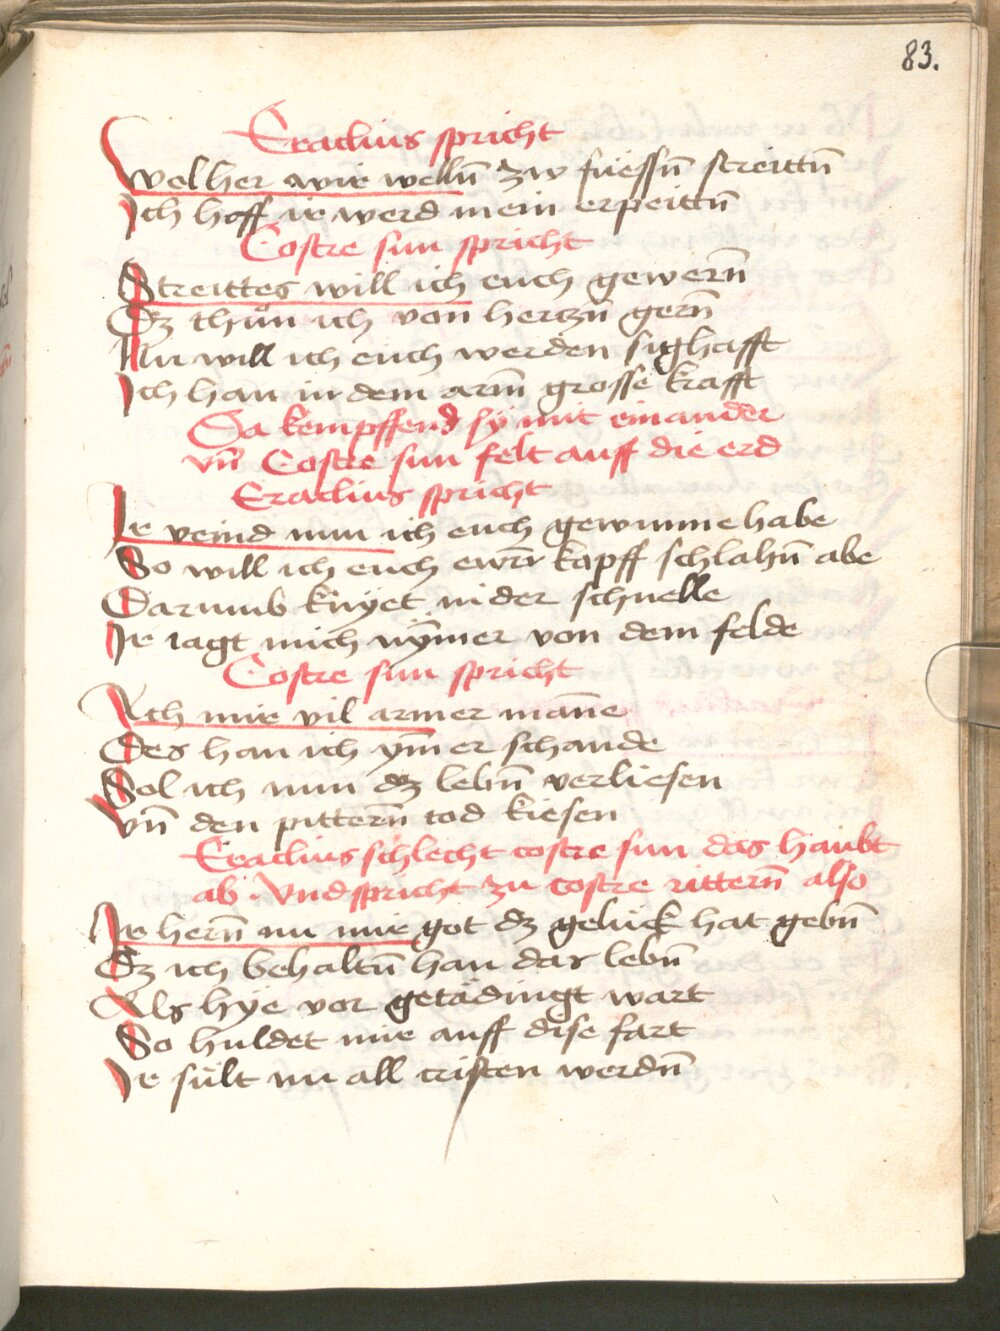 83.
Eraclius spricht
Wol her wir wellñ zw fuessñ streittñ
Ich hoff ir werd mein erpeittñ
Costre sun spricht
Streittes will ich euch gewerñ
Dz thůn ich von hertzñ gerñ
Nu will ich euch werden sighafft
Ich han in dem arm̃ grosse krafft
Da kempffend sÿ mit einander
vñ Costre sun felt auff die erd
Eraclius spricht
Ir veind nun ich euch gewunne habe
So will ich euch ewr̃ kopff schlahñ abe
Darumb knÿet nider schnelle
Ir iagt mich nÿmer von dem felde
Costre sun spricht
Ach mir vil armer mañe
Des han ich ym̃er schande
Sol ich nun dz lebñ verliesen
vñ den pitterñ tod kiesen
Eraclius schlecht costre sun das haubt
ab. Vnd spricht zu costre ritterñ also
Ir herñ nu mir got dz gelück hat gebñ
Dz ich behaltñ han das lebñ
Als hÿe vor getädingt wart
So huldet mir auff dise fart
Ir sült nu all cristen werdñ